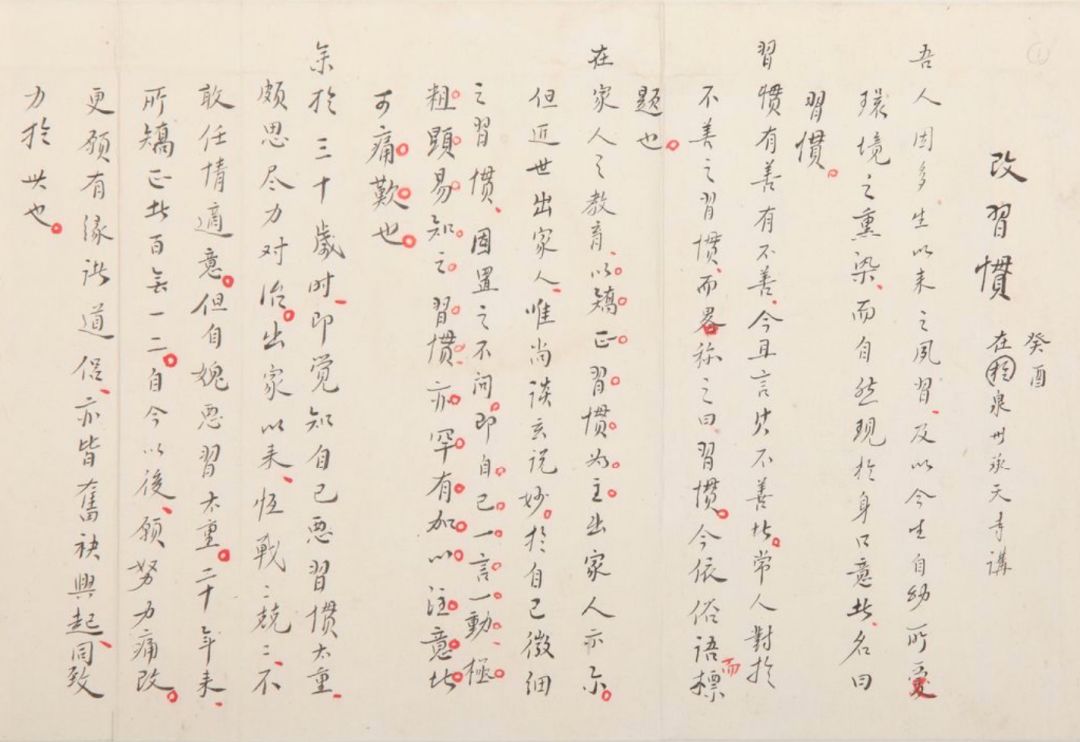 改習慣
癸酉
在於泉州承天寺講
吾人因多生以来之夙習、及以今生自幼所受
環境之熏染、而自然現於身口意者、名曰
習慣。
習慣有善有不善、今且言其不善者。常人對於
不善之習慣、而畧称之曰習慣。今依俗語而標
題也。
在家人之教育、以矯正習慣為主。出家人亦尒。
但近世出家人、唯尚談玄说妙。於自己微細
之習慣、固置之不问。即自己一言一動、極
粗顯易知之習慣、亦罕有加以注意者。
可痛歎也。
余於三十歲时、即觉知自己恶習慣太重、
頗思尽力对治。出家以来、恒戰〻兢〻、不
敢任情適意。但自媿恶習太重。二十年来、
所矯正者百无一二。自今以後、願努力痛改。
更願有缘诸道侣、亦皆奮袂興起、同致
力於此也。